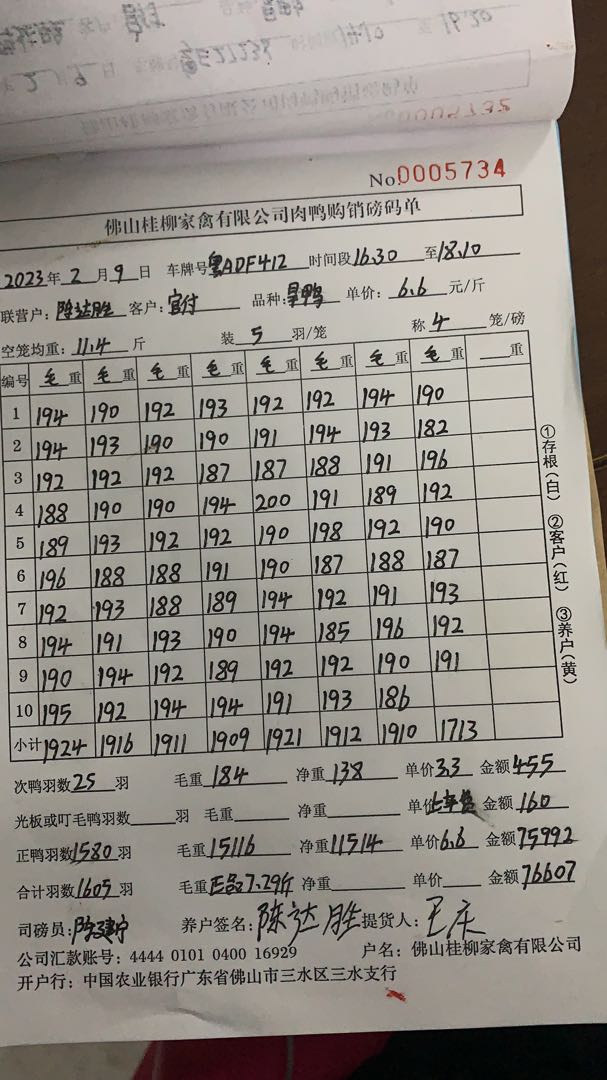 No.0005734
佛山桂柳家禽有限公司肉鸭购销磅码单
2023年2月9日 车牌号粤ADF412 时间段16.30至18.10
联营户：陈达胜 客户：宫付 品种：旱鸭 单价：6.6元/斤
空笼均重：11.4斤 装5羽/笼 称4笼/磅
编号 毛重 毛重 毛重 毛重 毛重 毛重 毛重 毛重 重
1 194 190 192 193 192 192 194 190
2 194 193 190 190 191 194 193 182
3 192 192 192 187 187 188 191 196
4 188 190 190 194 200 191 189 192
5 189 193 192 192 190 198 192 190
6 196 188 188 191 190 187 188 187
7 192 193 188 189 194 192 191 193
8 194 191 193 190 194 185 196 192
9 190 194 192 189 192 192 190 191
10 195 192 194 194 191 193 186
小计 1924 1916 1911 1909 1921 1912 1910 1713
次鸭羽数25羽 毛重184 净重138 单价3.3 金额455
光板或叮毛鸭羽数 羽 毛重 净重 单价 金额160
正鸭羽数1580羽 毛重15116 净重11514 单价6.6 金额75992
合计羽数1605羽 毛重正品7.29斤 净重 单价 金额76607
司磅员： 养户签名：陈达胜 提货人：王庆
公司汇款账号：4444 0101 0400 16929 户名：佛山桂柳家禽有限公司
开户行：中国农业银行广东省佛山市三水区三水支行
①存根(白) ②客户(红) ③养户(黄)